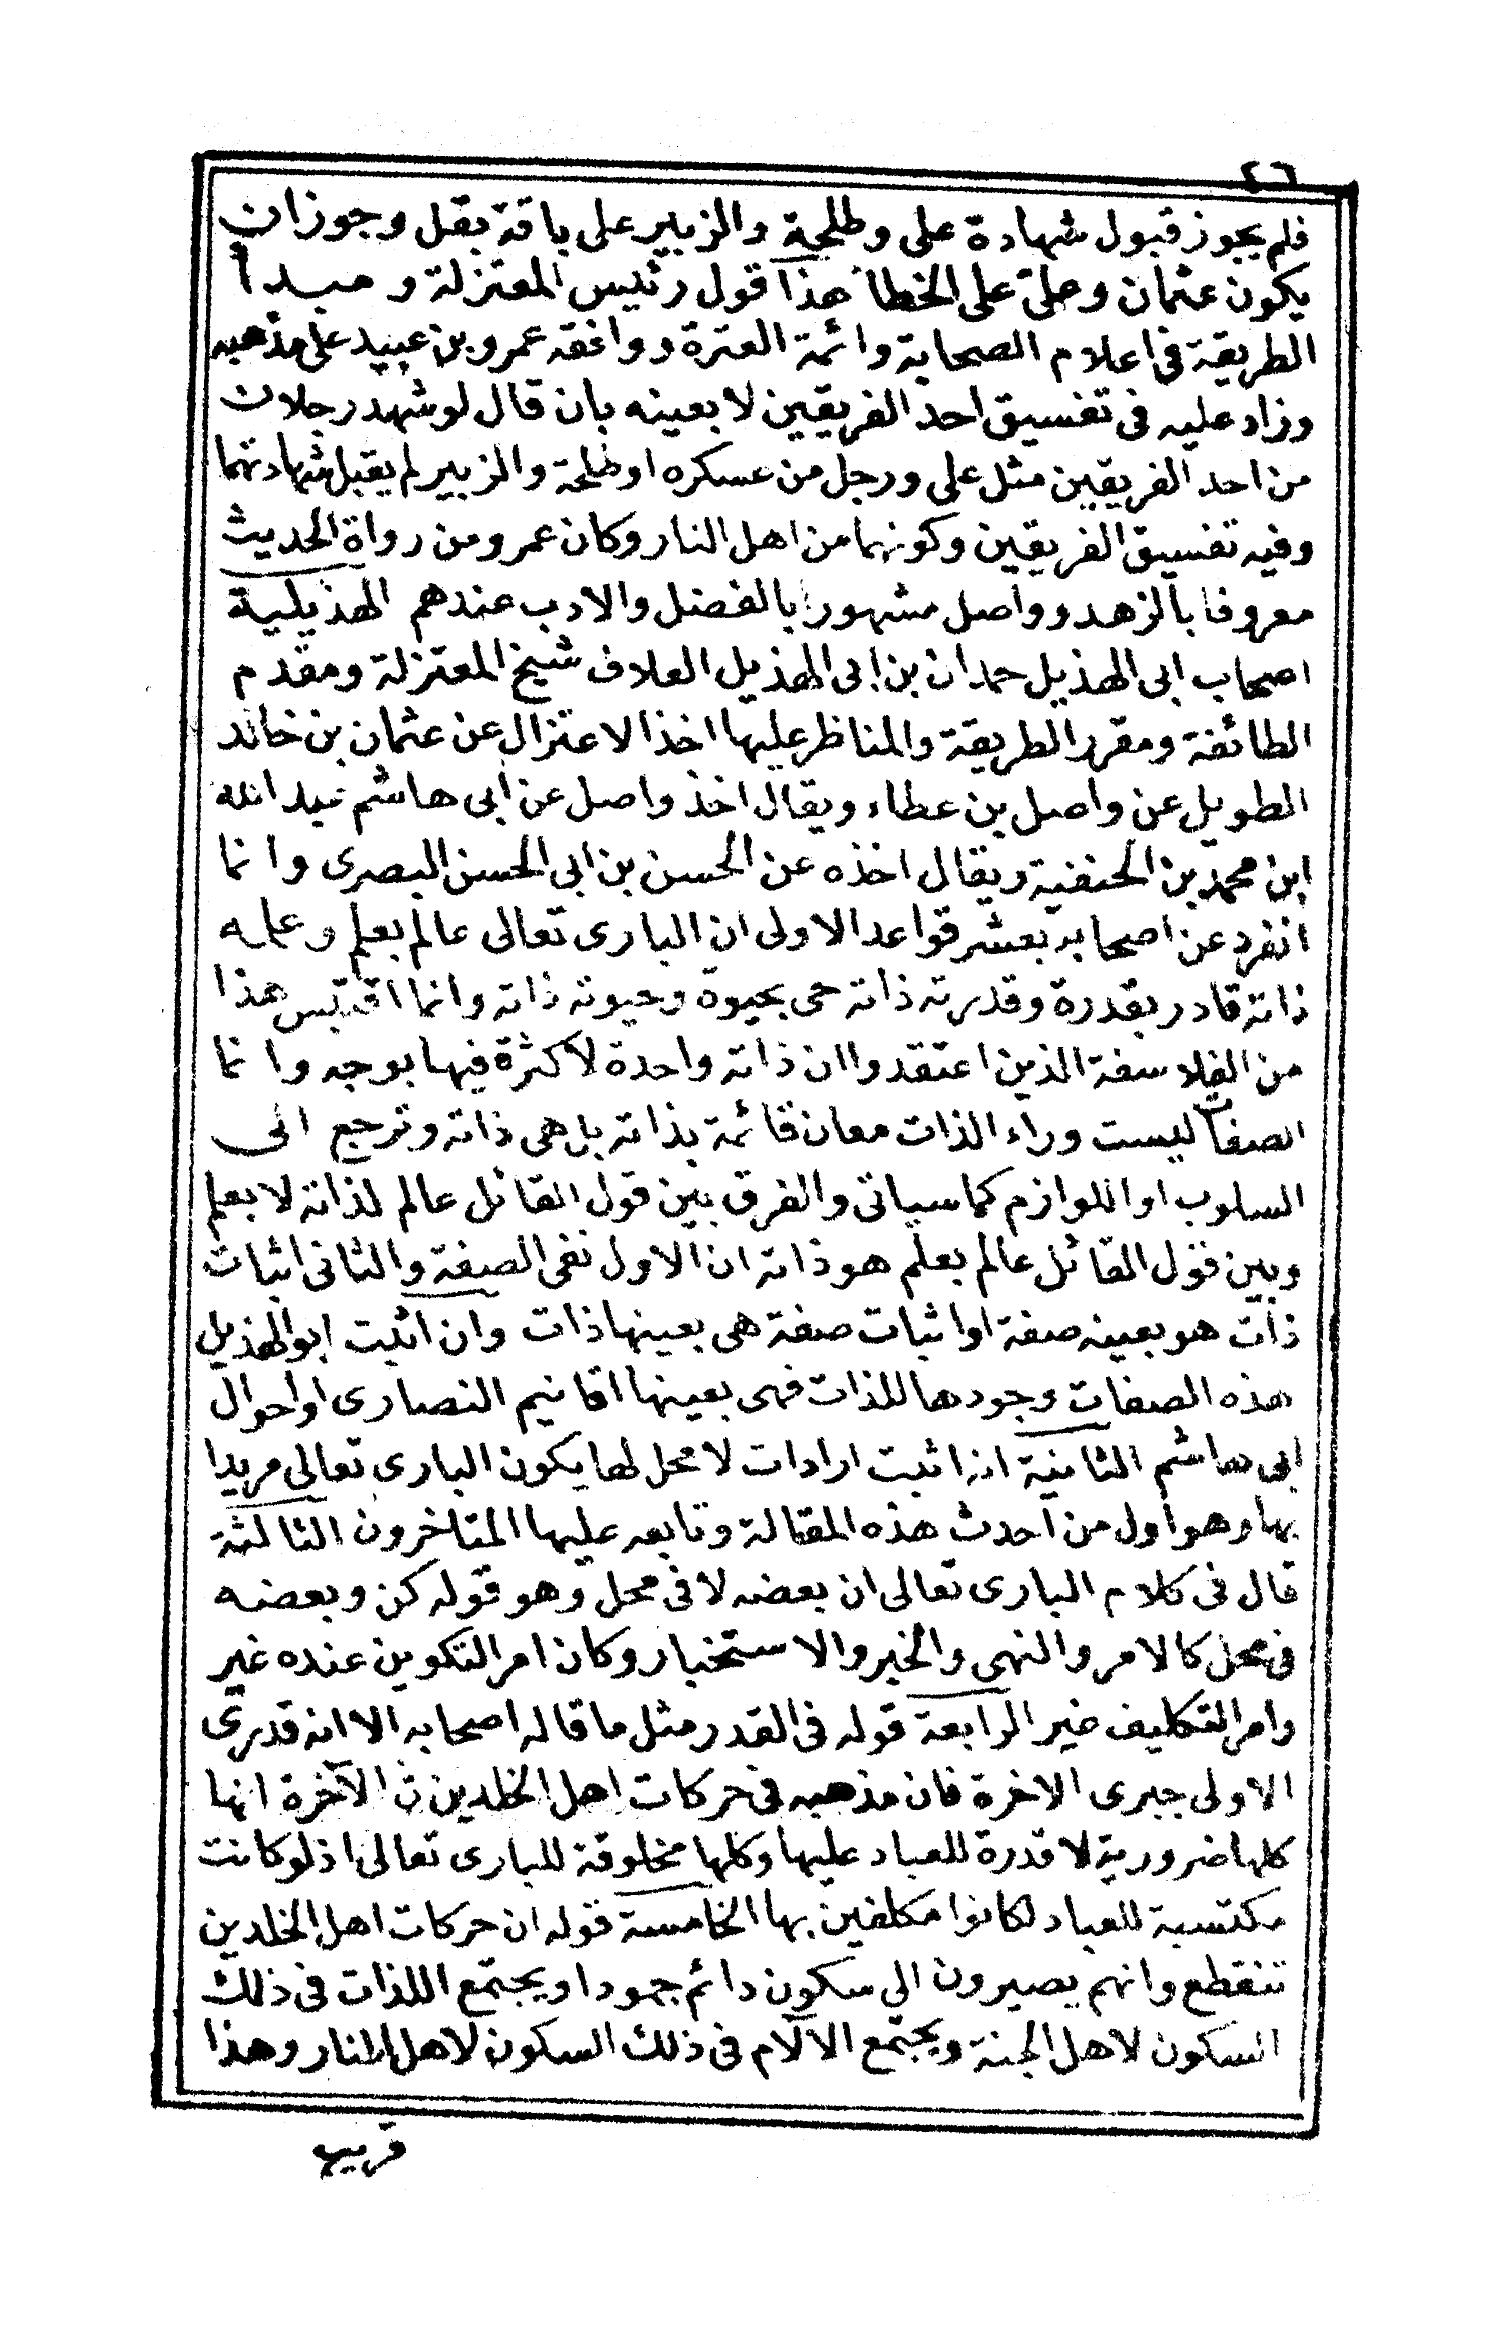 ٤٦
فلم يجوز قبول شهادة على وطلحة والزبير على باقة بقل وجوزان
يكون عثمان وعلى على الخطا هذا قول رئيس المعتزلة ومبدأ
الطريقة في اعلام الصحابة وائمة العترة ووافقه عمرو بن عبيد على مذهبه
وزاد عليه فى تفسيق احد الفريقين لا بعينه بان قال لو شهد رجلان
من احد الفريقين مثل على ورجل من عسكره او طلحة والزبير لم يقبل شهادتهما
وفيه تفسيق الفريقين وكونهما من اهل النار وكان عمرو من رواة الحديث
معروفا بالزهد وواصل مشهورا بالفضل والادب عندهم الهذيلية
اصحاب ابى الهذيل حمدان بن ابى الهذيل العلاف شيخ المعتزلة ومقدم
الطائفة ومقرر الطريقة والمناظر عليها اخذ الاعتزال عن عثمان بن خالد
الطويل عن واصل بن عطاء ويقال اخذ واصل عن ابى هاشم عبد الله
ابن محمد بن الحنفية ويقال اخذه عن الحسن بن ابى الحسن البصرى وانما
انفرد عن اصحابه بعشر قواعد الاولى ان البارى تعالى عالم بعلم وعلمه
ذاته قادر بقدرة وقدرته ذاته حى بحيوة وحيوته ذاته وانما اقتبس هذا
من الفلاسفة الذين اعتقدوا ان ذاته واحدة لا كثرة فيها بوجه وانما
الصفا ليست وراء الذات معان قائمة بذاته بل هى ذاته وترجع الى
السلوب او اللوازم كما سياتى والفرق بين قول القائل عالم لذاته لا بعلم
وبين قول القائل عالم بعلم هو ذاته ان الاول نفى الصفة والثانى اثبات
ذات هو بعينه صفة او اثبات صفة هى بعينها ذات وان اثبت ابو الهذيل
هذه الصفات وجودها للذات فهى بعينها اقانيم النصارى او احوال
ابى هاشم الثانية انه اثبت ارادات لا محل لها يكون البارى تعالى مريدا
بها وهو اول من احدث هذه المقالة وتابعه عليها المتاخرون الثالثة
قال فى كلام البارى تعالى ان بعضه لا فى محل وهو قوله كن وبعضه
فى محل كالامر والنهى والخبر والاستخبار وكان امر التكوين عنده غير
وامر التكليف غير الرابعة قوله فى القدر مثل ما قاله اصحابه الا انه قدرى
الاولى جبرى الاخرة فان مذهبه فى حركات اهل الخلدين فى الآخرة انها
كلها ضرورية لا قدرة للعباد عليها وكلها مخلوقة للبارى تعالى اذ لو كانت
مكتسبة للعباد لكانوا مكلفين بها الخامسة قوله ان حركات اهل الخلدين
تنقطع وانهم يصيرون الى سكون دائم جمودا ويجتمع اللذات فى ذلك
السكون لاهل الجنة ويجتمع الآلام فى ذلك السكون لاهل النار وهذا
قريب